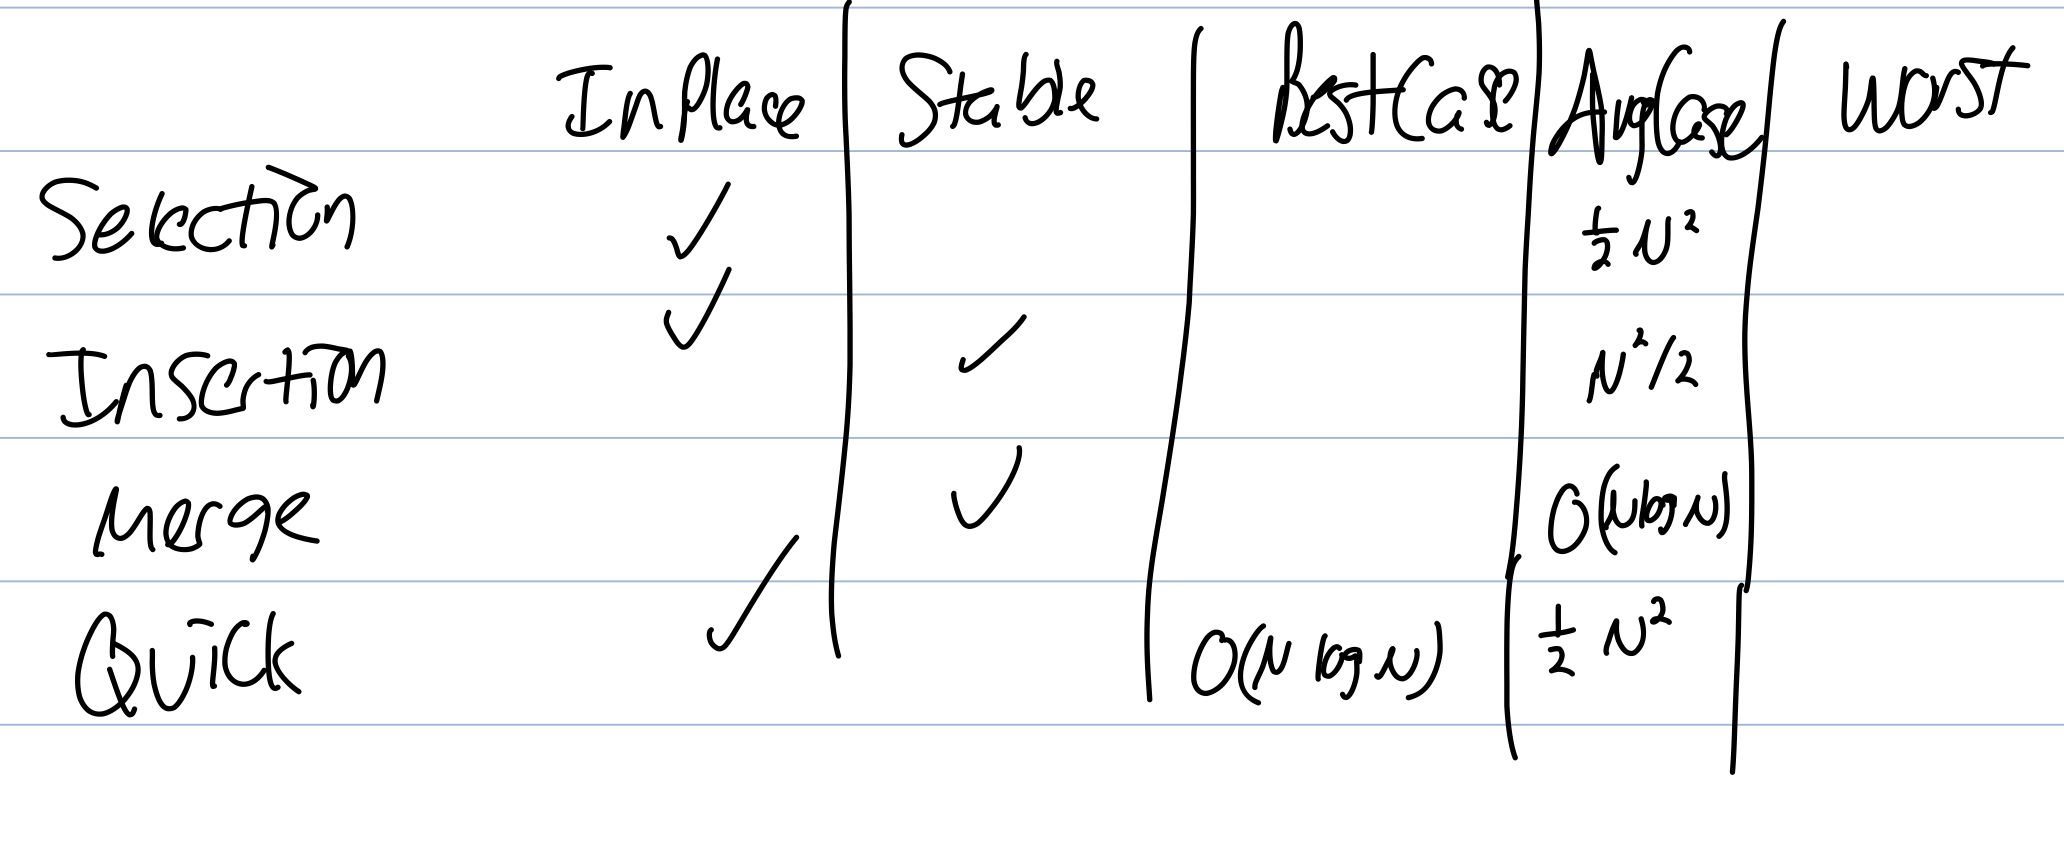 InPlace Stable BestCase AvgCase Worst
Selection ✓ ½ N²
Insertion ✓ ✓ N²/2
Merge ✓ O(N log N)
Quick ✓ O(N log N) ½ N²